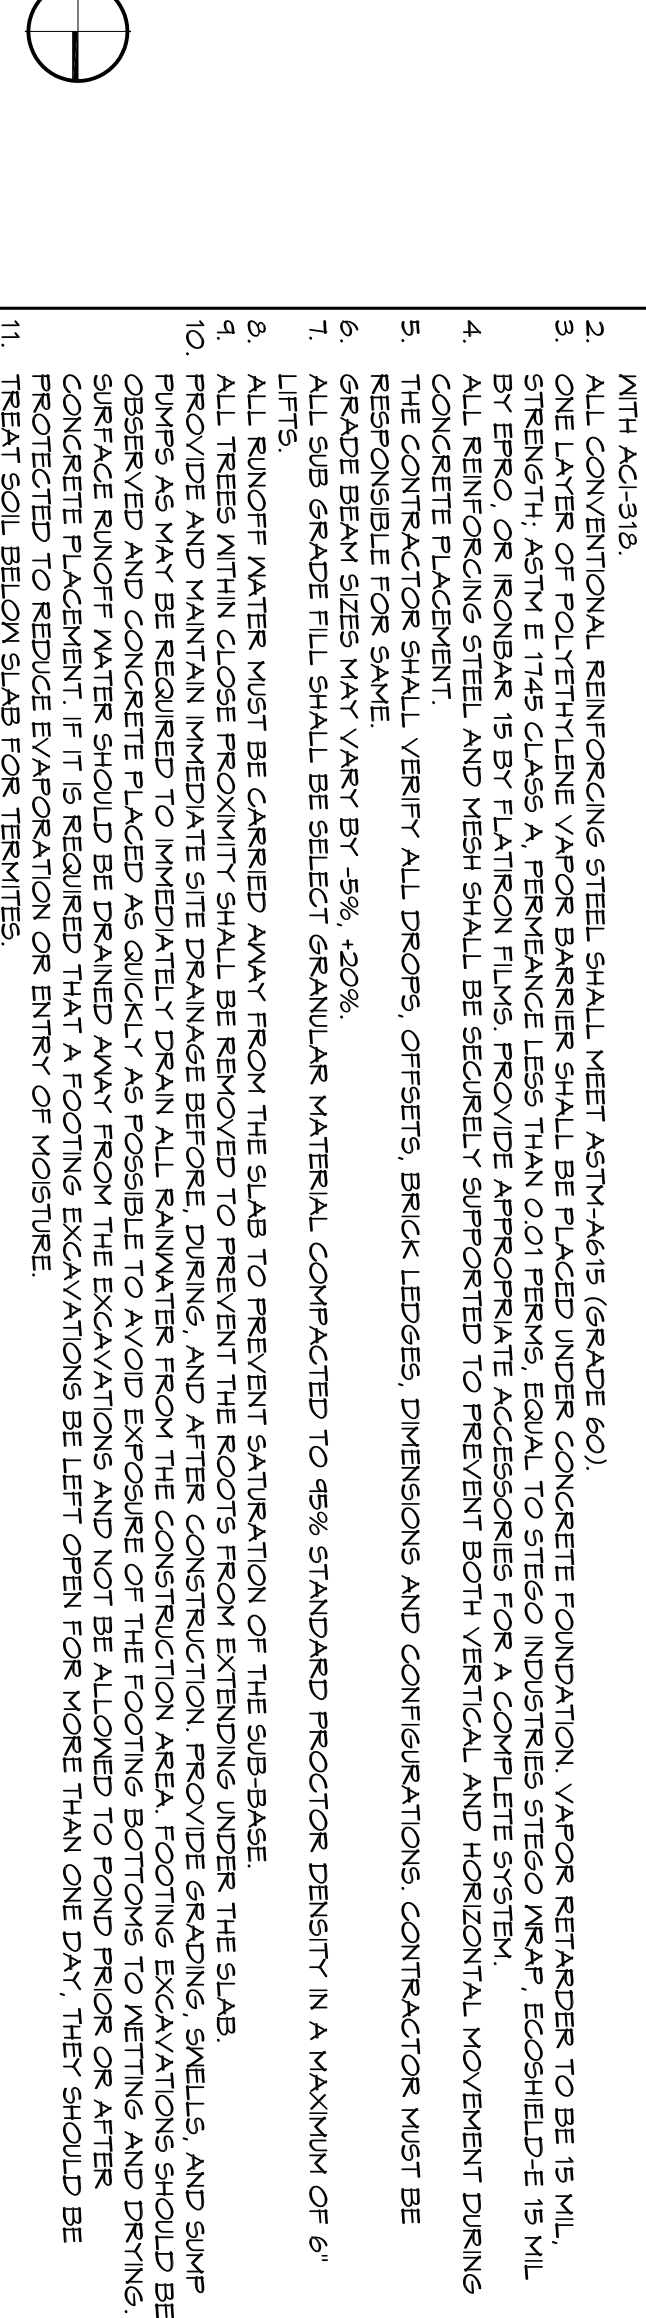 WITH ACI-318.
2. ALL CONVENTIONAL REINFORCING STEEL SHALL MEET ASTM-A615 (GRADE 60).
3. ONE LAYER OF POLYETHYLENE VAPOR BARRIER SHALL BE PLACED UNDER CONCRETE FOUNDATION. VAPOR RETARDER TO BE 15 MIL,
STRENGTH; ASTM E 1745 CLASS A, PERMEANCE LESS THAN 0.01 PERMS, EQUAL TO STEGO INDUSTRIES STEGO WRAP, ECOSHIELD-E 15 MIL
BY EPRO, OR IRONBAR 15 BY FLATIRON FILMS. PROVIDE APPROPRIATE ACCESSORIES FOR A COMPLETE SYSTEM.
4. ALL REINFORCING STEEL AND MESH SHALL BE SECURELY SUPPORTED TO PREVENT BOTH VERTICAL AND HORIZONTAL MOVEMENT DURING
CONCRETE PLACEMENT.
5. THE CONTRACTOR SHALL VERIFY ALL DROPS, OFFSETS, BRICK LEDGES, DIMENSIONS AND CONFIGURATIONS. CONTRACTOR MUST BE
RESPONSIBLE FOR SAME.
6. GRADE BEAM SIZES MAY VARY BY -5%, +20%.
7. ALL SUB GRADE FILL SHALL BE SELECT GRANULAR MATERIAL COMPACTED TO 95% STANDARD PROCTOR DENSITY IN A MAXIMUM OF 6"
LIFTS.
8. ALL RUNOFF WATER MUST BE CARRIED AWAY FROM THE SLAB TO PREVENT SATURATION OF THE SUB-BASE.
9. ALL TREES WITHIN CLOSE PROXIMITY SHALL BE REMOVED TO PREVENT THE ROOTS FROM EXTENDING UNDER THE SLAB.
10. PROVIDE AND MAINTAIN IMMEDIATE SITE DRAINAGE BEFORE, DURING, AND AFTER CONSTRUCTION. PROVIDE GRADING, SWELLS, AND SUMP
PUMPS AS MAY BE REQUIRED TO IMMEDIATELY DRAIN ALL RAINWATER FROM THE CONSTRUCTION AREA. FOOTING EXCAVATIONS SHOULD BE
OBSERVED AND CONCRETE PLACED AS QUICKLY AS POSSIBLE TO AVOID EXPOSURE OF THE FOOTING BOTTOMS TO WETTING AND DRYING.
SURFACE RUNOFF WATER SHOULD BE DRAINED AWAY FROM THE EXCAVATIONS AND NOT BE ALLOWED TO POND PRIOR OR AFTER
CONCRETE PLACEMENT. IF IT IS REQUIRED THAT A FOOTING EXCAVATIONS BE LEFT OPEN FOR MORE THAN ONE DAY, THEY SHOULD BE
PROTECTED TO REDUCE EVAPORATION OR ENTRY OF MOISTURE.
11. TREAT SOIL BELOW SLAB FOR TERMITES.